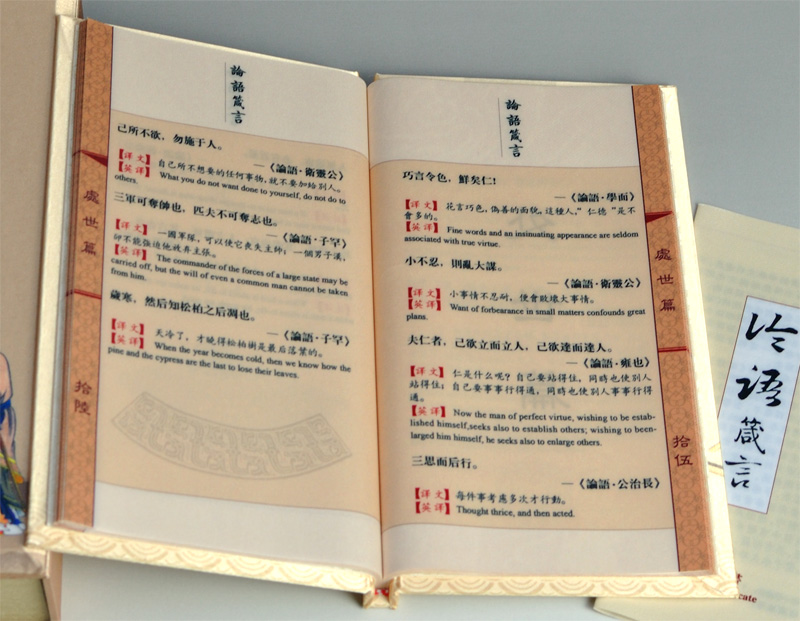 論語箴言
己所不欲，勿施于人。
—《論語·衛靈公》
【譯文】 自己所不想要的任何事物，就不要加給別人。
【英譯】 What you do not want done to yourself, do not do to
others.
三軍可奪帥也，匹夫不可奪志也。
—《論語·子罕》
【譯文】 一國軍隊，可以使它喪失主帥；一個男子漢，
卻不能強迫他放弃主張。
【英譯】 The commander of the forces of a large state may be
carried off, but the will of even a common man cannot be taken
from him.
歲寒，然后知松柏之后凋也。
—《論語·子罕》
【譯文】 天冷了，才曉得松柏樹是最后落葉的。
【英譯】 When the year becomes cold, then we know how the
pine and the cypress are the last to lose their leaves.
處世篇
拾陸
論語箴言
巧言令色，鮮矣仁！
—《論語·學而》
【譯文】 花言巧色，偽善的面貌，這種人，“仁德”是不
會多的。
【英譯】 Fine words and an insinuating appearance are seldom
associated with true virtue.
小不忍，則亂大謀。
—《論語·衛靈公》
【譯文】 小事情不忍耐，便會敗壞大事情。
【英譯】 Want of forbearance in small matters confounds great
plans.
夫仁者，己欲立而立人，己欲達而達人。
—《論語·雍也》
【譯文】 仁是什么呢？自己要站得住，同時也使別人
站得住；自己要事事行得通，同時也使別人事事行得
通。
【英譯】 Now the man of perfect virtue, wishing to be estab-
lished himself,seeks also to establish others; wishing to been-
larged him himself, he seeks also to enlarge others.
三思而后行。
—《論語·公治長》
【譯文】 每件事考慮多次才行動。
【英譯】 Thought thrice, and then acted.
處世篇
拾伍
论语箴言